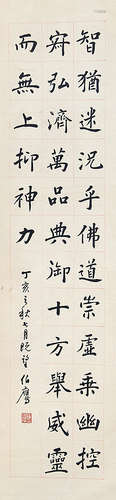 智猶迷況乎佛道崇虛乗幽控
寂弘濟萬品典御十方舉威靈
而無上抑神力
丁亥之秋七月既望伯鷹